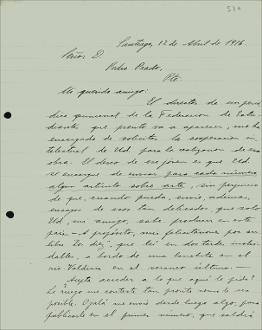 Santiago, 12 de Abril de 1916.
Señor D.
Pedro Prado,
Pte
Mi querido amigo:
El director de un perió
dico quincenal de la Federación de Estu
diantes que pronto va a aparecer, me ha
encargado de solicitar la cooperación in
telectual de Ud. para la realización de esa
obra. El deseo de ese joven es que Ud.
se encargue de enviar para cada número
algun artículo sobre arte, sin perjuicio
de que, cuando pueda, envíe, además,
ensayos de esos tan delicados que solo
Ud., mi amigo, sabe producir en este
país. A propósito, mis felicitaciones por su
libro Los Diez, que leí en dos tardes inolvi-
dables, a bordo de una lancha en el
río Valdivia en el verano último.
Acepta acceder a lo que aquí le pido?
Le ruego me conteste tan pronto como le sea
posible. Ojalá me envíe desde luego algo, para
publicarlo en el primer número, que saldrá